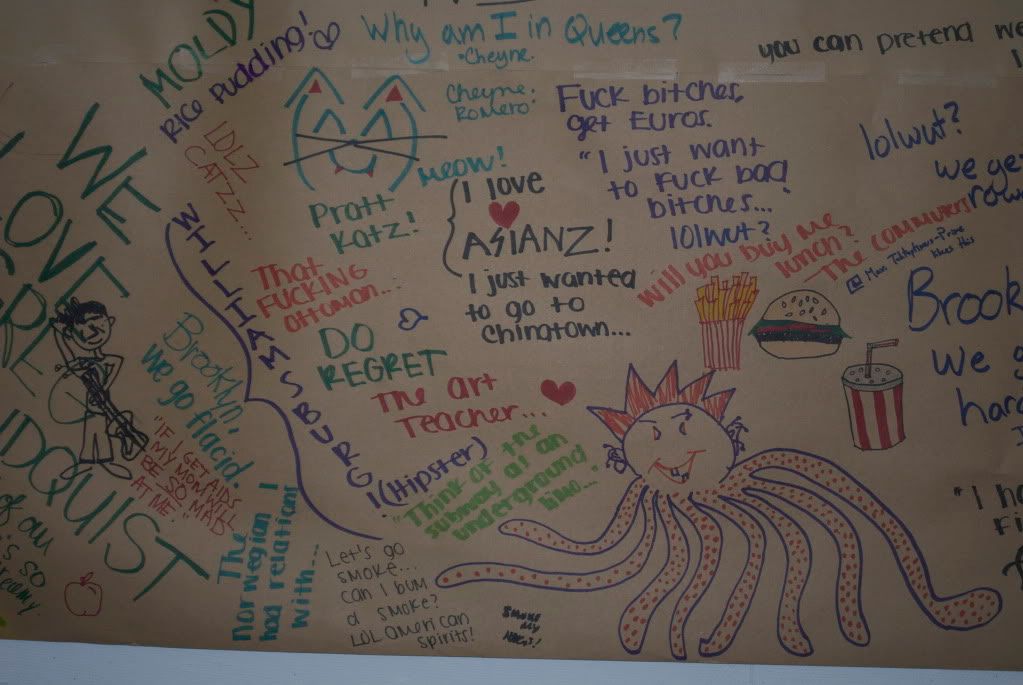 MOLDY
RICE PUDDING!
LOLZ
CATZZ...
Why am I in Queens?
·Cheyne.
Cheyne:
Romero:
Meow!
Pratt
Katz!
Fuck bitches,
get Euros.
"I just want
to fuck bad
bitches...
lolwut?
you can pretend we
lolwut?
we ge
row
I love
ASIANZ!
I just wanted
to go to
chinatown...
Will you buy me
lunch?
The commuters
WE
LOVE
WILLIAMSBURG
!(Hipster)
That
FUCKING
Ottoman...
DO
REGRET
The art
Teacher...
"Think of the
subway as an
underground
limo...
Brooklyn,
we go flacid.
"IF I GET AIDS
MY MOM WILL
BE SO MAD
AT ME."
NDQUIST
The
norwegian I
had relations
with...
Let's go
smoke...
can I bum
a smoke?
LOL american
spirits!
SMOKE
MY
Brook
We g
hard
"I ha
Fi
of our
's so